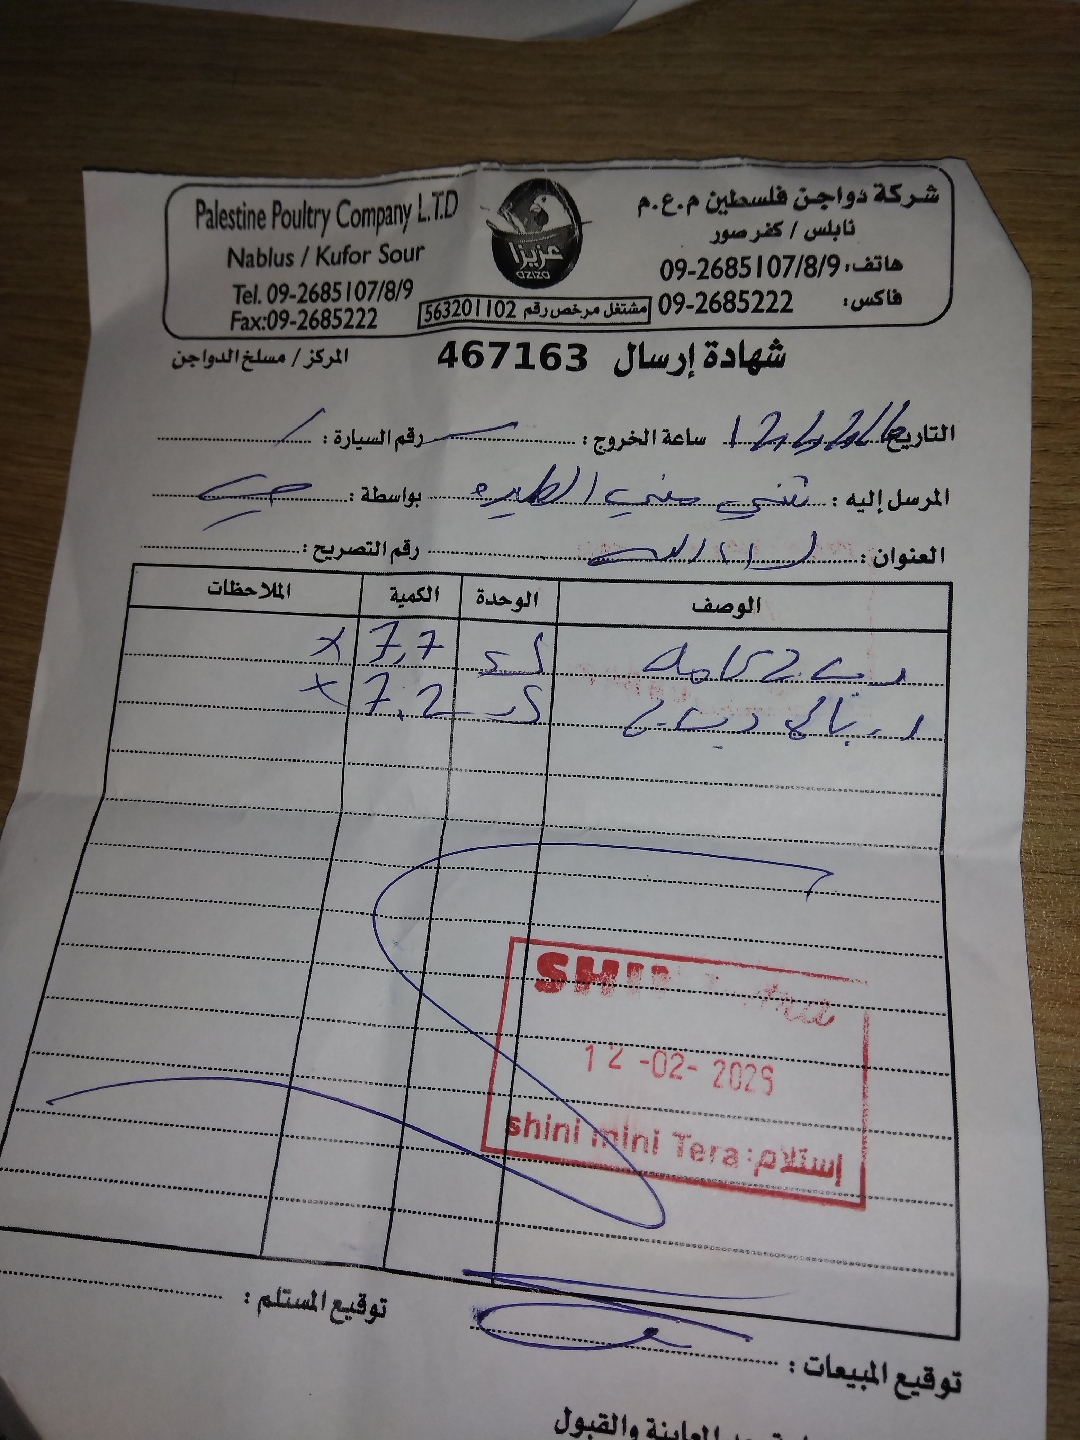 Palestine Poultry Company L.T.D
Nablus / Kufor Sour
Tel. 09-2685107/8/9
Fax:09-2685222
عزيزا
aziza
شركة دواجن فلسطين م.ع.م
نابلس / كفر صور
هاتف: 09-2685107/8/9
فاكس: 09-2685222
مشتغل مرخص رقم 563201102
شهادة إرسال 467163
المركز / مسلخ الدواجن
التاريخ ساعة الخروج : رقم السيارة :
المرسل إليه : شني ميني الطيره بواسطة :
العنوان : رام الله رقم التصريح :
الوصف الوحدة الكمية الملاحظات
7,7 x
7,2 x
12-02-2026
shini mini Tera :إستلام
توقيع المستلم :
توقيع المبيعات :
المعاينة والقبول